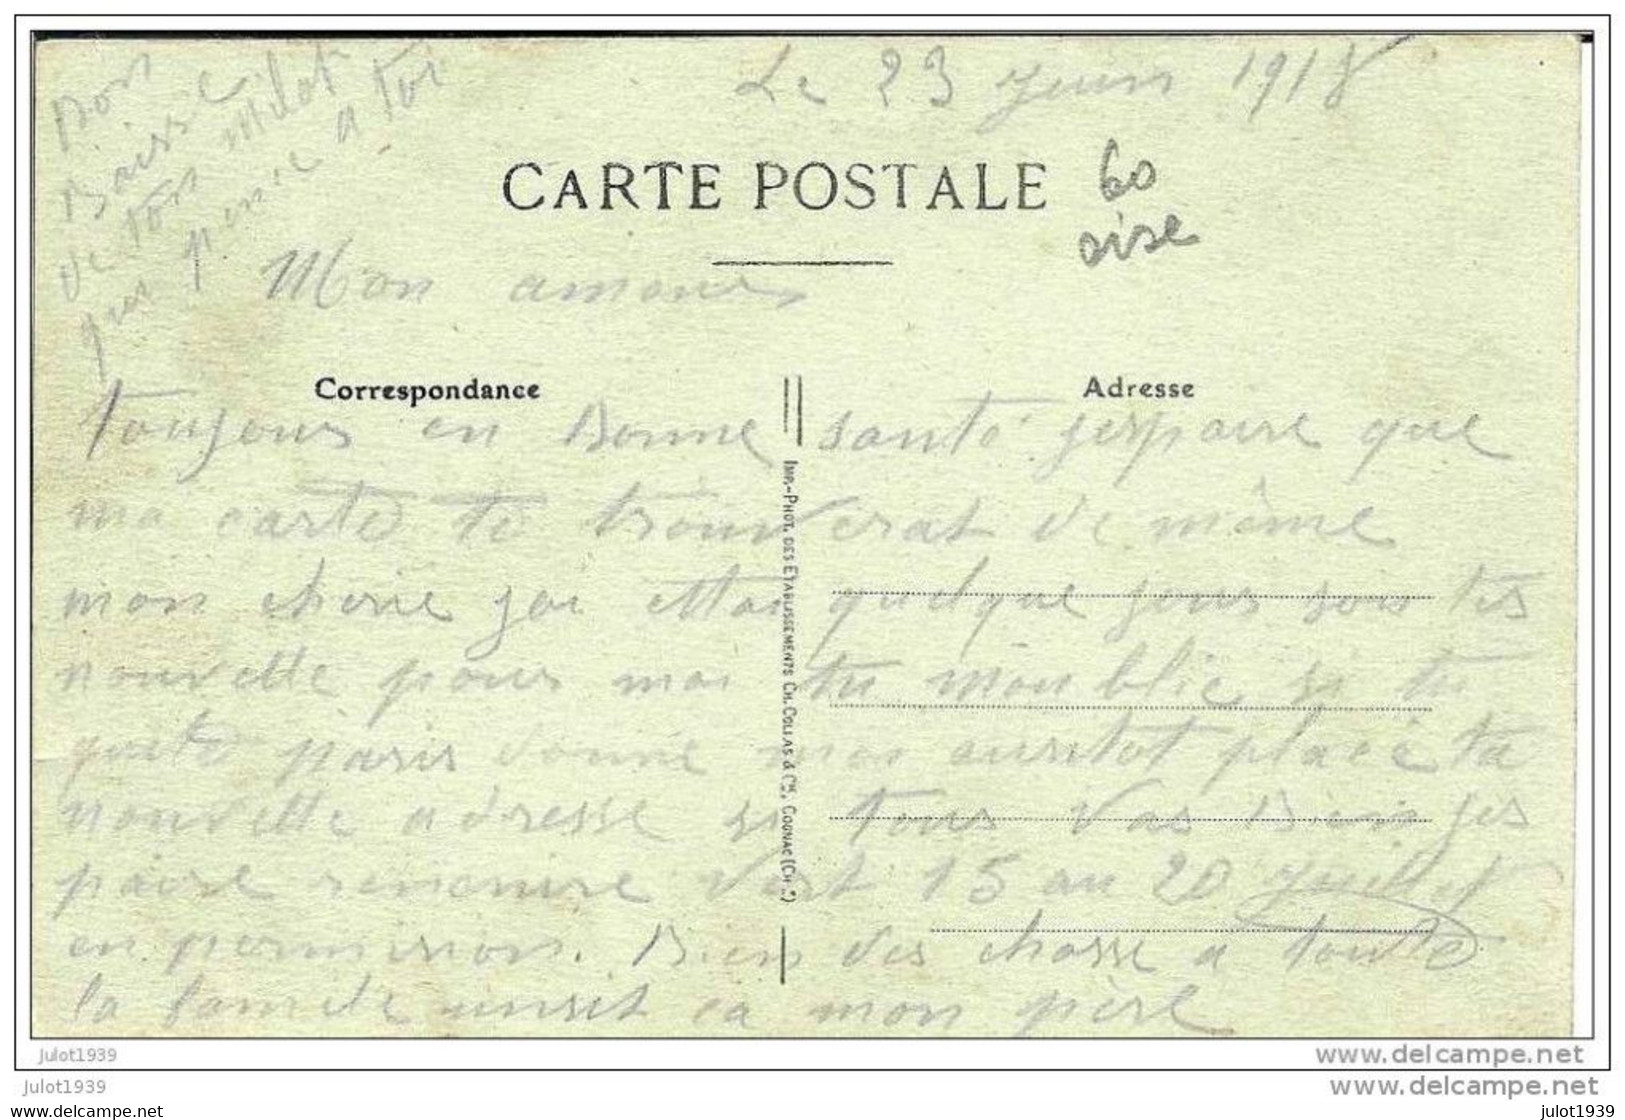 Le 23 juin 1918
Bon
Baissé
de ton milot
qui pense a toi
CARTE POSTALE
60
oise
Mon amour
Correspondance
Adresse
toujours en Bonne santé jespaire que
ma carte te trouverat de même
mon cherie jai etta quelque jours sois tes
nouvelle pour moi tu moublie si tu
quite paris donne moi ausitot place ta
nouvelle adresse si tous vas Bien jes
paire venir vert 15 au 20 juillet
en permission. Bien des chosse a toute
la famile insit ca mon père
IMP.-PHOT. DES ETABLISSEMENTS CH. COLLAS & Cie, COGNAC (CH.)
julot1939
www.delcampe.net
julot1939
www.delcampe.net
www.delcampe.net
julot1939